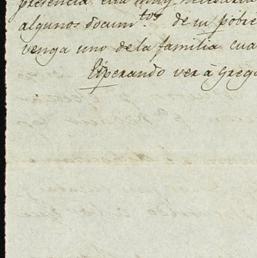 presencia era muy necesaria
algunos docum.tos de su pobre
venga uno de la familia cua
Esperando ver á Grego